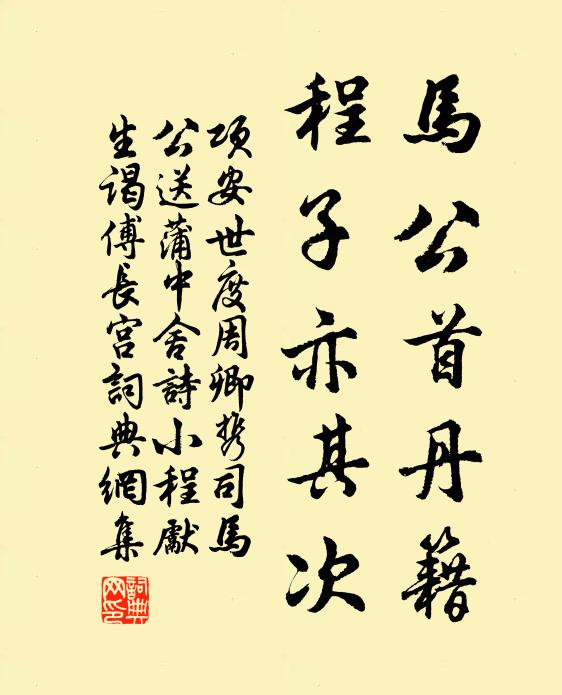 馬公首丹籍
程子亦其次
項安世度周卿携司馬
公送蒲中舍詩小程獻
生谒傅長宫詞典網集
詞典網印